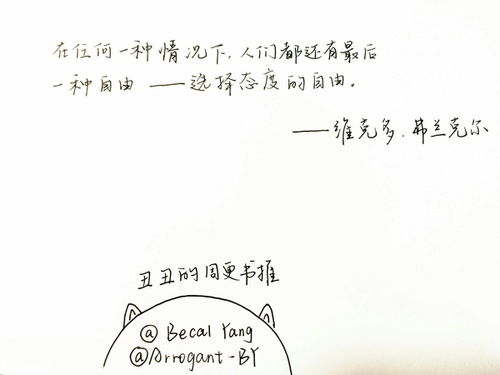 在任何一种情况下，人们都还有最后
一种自由 ——选择态度的自由。
——维克多．弗兰克尔
丑丑的周更书推
@ Becal Yang
@Arrogant-BY